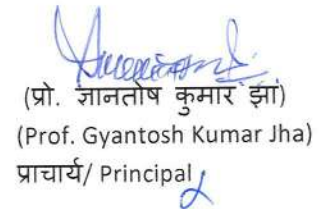 (प्रो. ज्ञानतोष कुमार झा)
(Prof. Gyantosh Kumar Jha)
प्राचार्य/ Principal